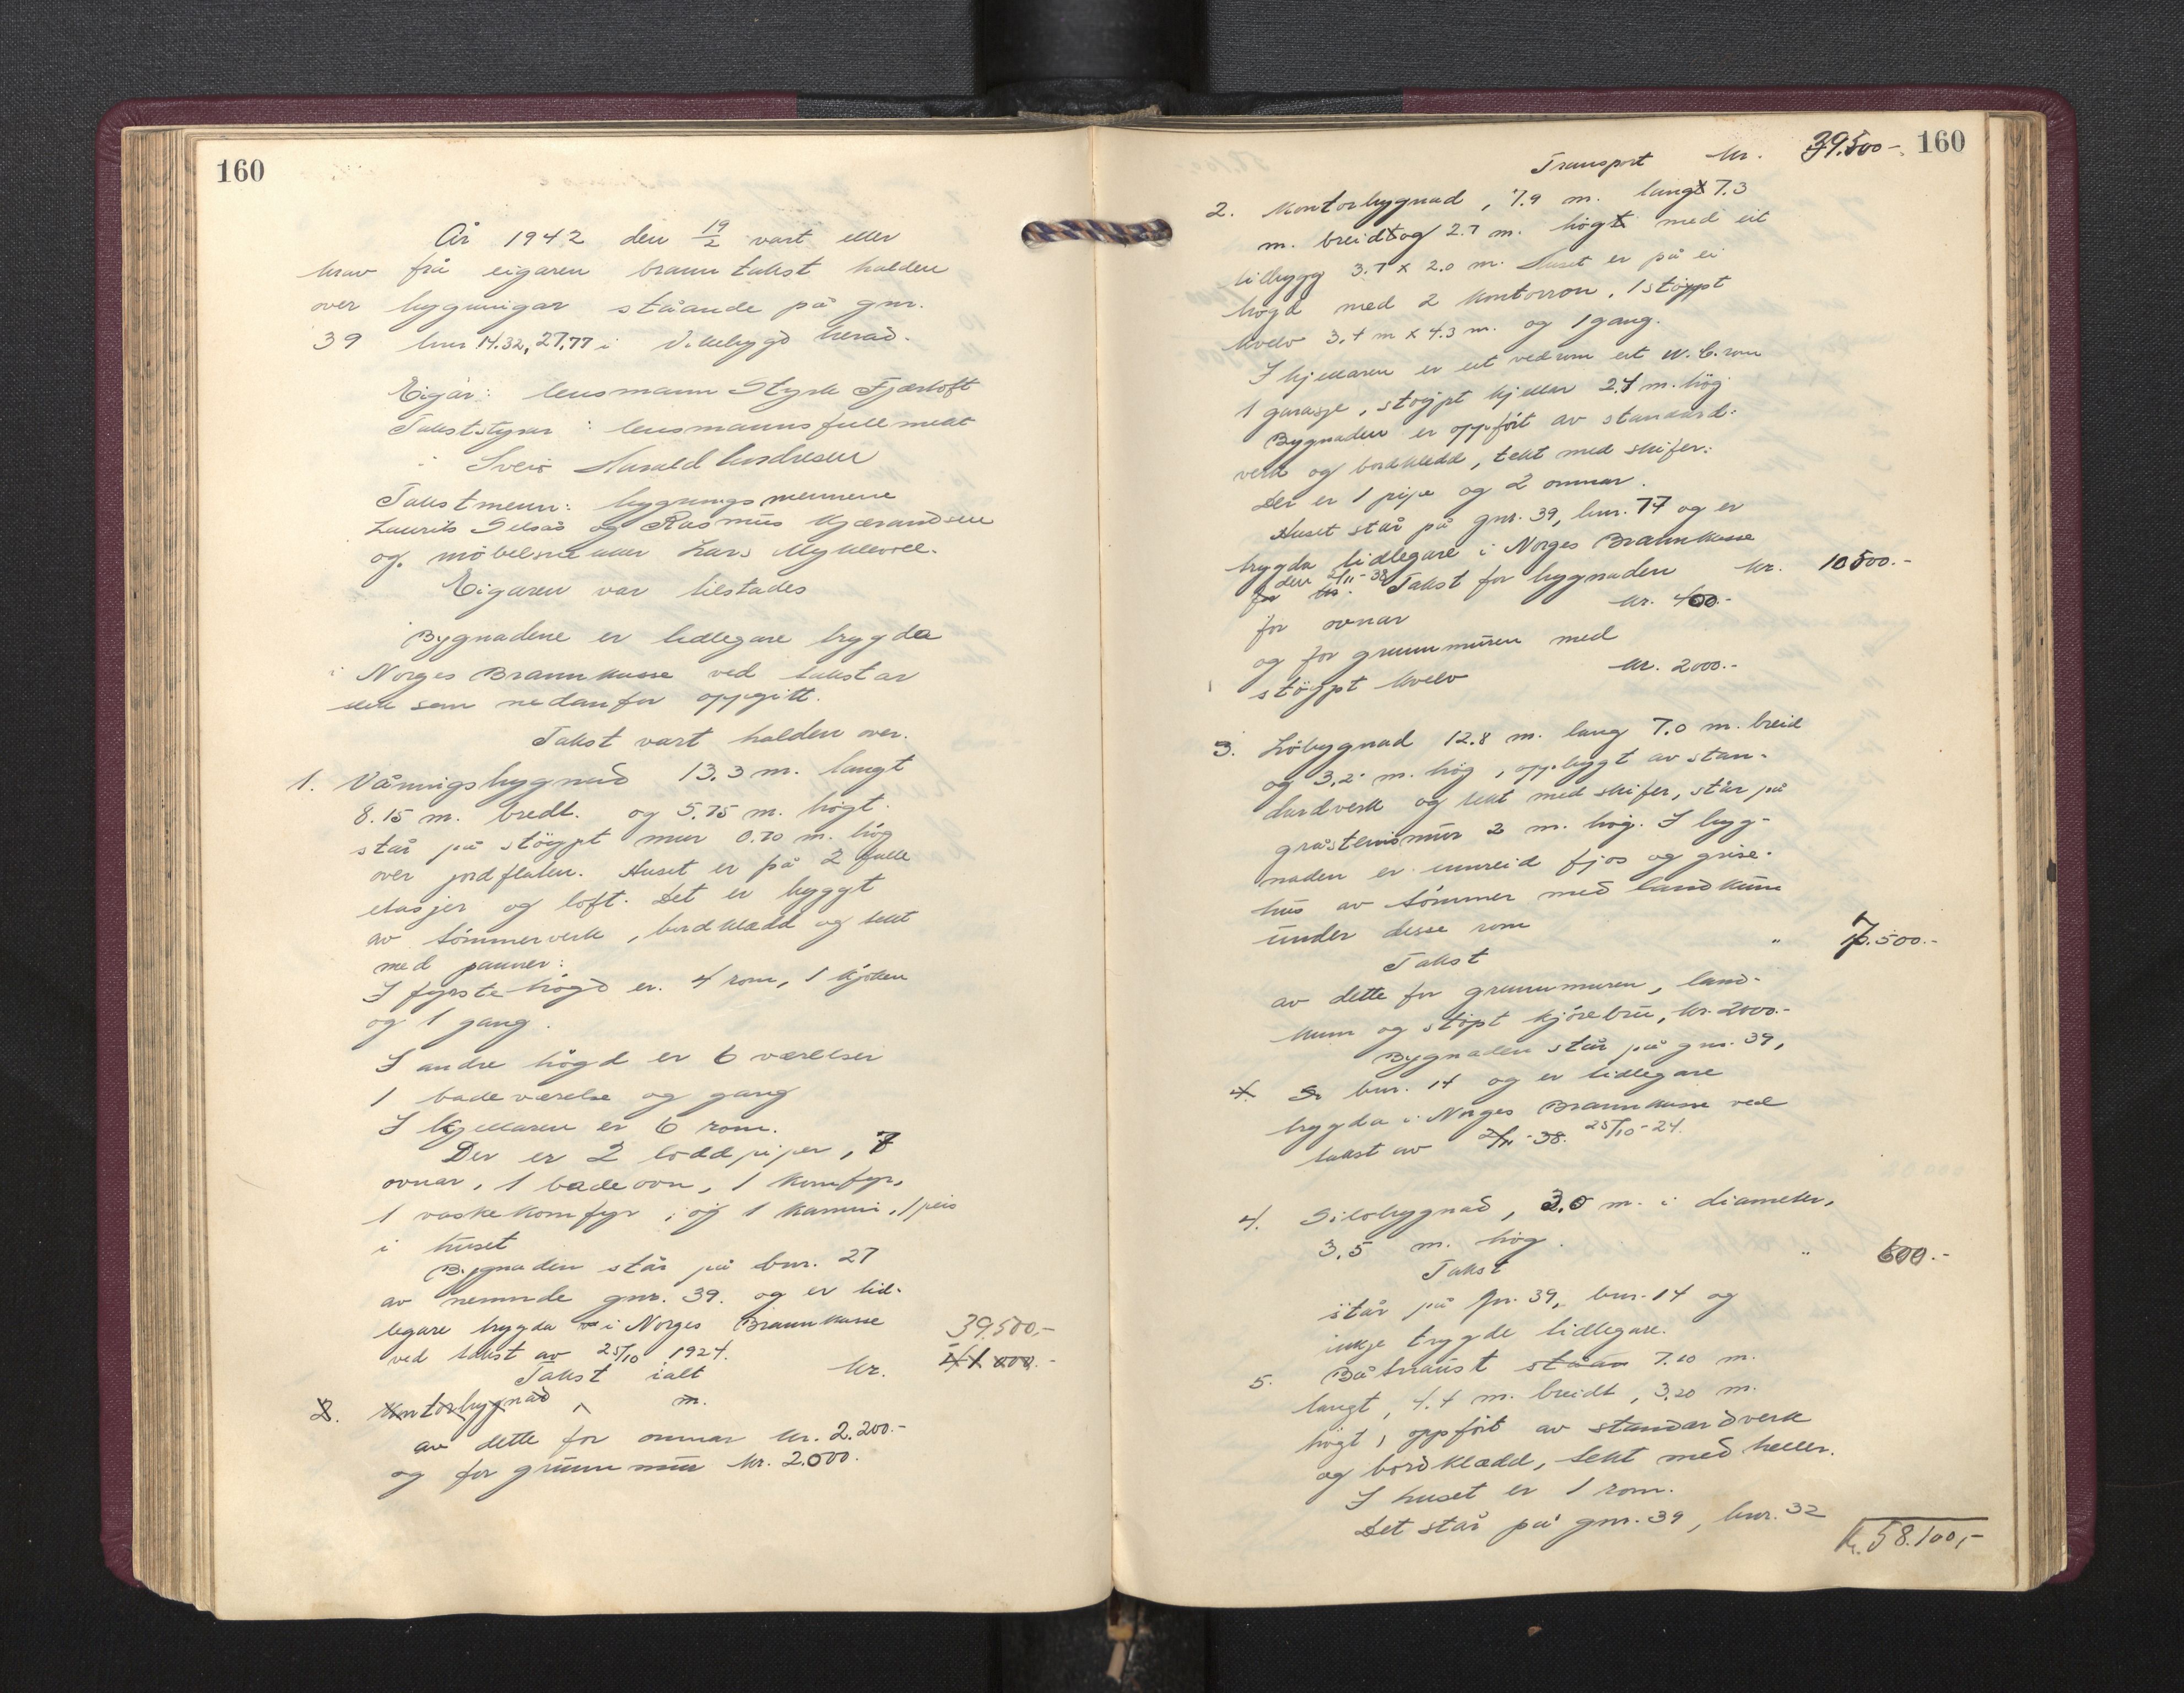 160
År 1942 den 19/2 vart etter
krav frå eigaren branntakst halden
over bygningar ståande på gnr.
39 bnr. 14.32, 27,77 i Vikebygd herad.
Eigar: lensmann Styrk Fjærtoft
Takststyrar: lensmannsfullmekt
i Sveio Harald Andresen
Takstmenn: bygningsmennene
Laurits Selsås og Rasmus Kjærandsen
og møbelsnekkar Lars Myklevoll.
Eigaren var tilstades
Bygnadene er tidlegare trygda
i Norges Brannkasse ved takstar
som nedanfor oppgitt.
Takst vart halden over.
1. Våningsbygnad 13.3 m. langt
8.15 m. bredt. og 5.75 m. högt.
står på stöypt mur 0.70 m. hög
over jordflaten. Huset er på 2 fulle
etasjer og loft. Det er byggt
av tömmerverk, bordklædd og tekt
med panner:
I fyrste högd er. 4 rom, 1 kjöken
og 1 gang.
I andre högd er 6 værelser
1 badeværelse og gang
I kjellaren er 6 rom.
Der er 2 loddpiper, 7
ovnar, 1 badeovn, 1 komfyr,
1 vaskekomfyr, og 1 kamin, 1 peis
i huset
Bygnaden står på bnr. 27
av nemnde gnr. 39. og er tid-
legare trygda i Norges Brannkasse
39.500,-
ved takst av 25/10 1924.
Takst ialt kr. 41 000.-
2. Kontorbygnad m.
av dette for omnar kr. 2.200.-
og for grunnmur kr. 2.000.
160
Transport kr. 39.500-.
2. Kontorbygnad, 7.9 m. langt 7.3
m. breidt og 2.7 m. högt med eit
tilbygg 3.7 x 2.0 m. Huset er på ei
högd med 2 kontorrom, 1 stöypt
kvelv 3.4 m x 4.3 m. og 1 gang.
I kjellaren er eit vedrom eit W.C. rom
1 garasje, stöypt kjellar 2.4 m. hög
Bygnaden er oppfört av standard-
verk og bordkledd, tekt med skifer:
Der er 1 pipe og 2 omnar.
Huset står på gnr. 39, bnr. 77 og er
trygda tidlegare i Norges Brannkasse
den 2/11-38
for kr. Takst for bygnaden kr. 10500.-
for ovnar kr. 400.-
og for grunnmuren med
stöypt kvelv kr. 2000.-
3. Löbygnad 12.8 m. lang 7.0 m. breid
og 3.2 m. hög, oppbygt av stan-
dardverk og tekt med skifer, står på
gråsteinsmur 2 m. hög. I byg-
naden er innreid fjos og grise-
hus av tömmer med landkum
under desse rom
Takst " 7.500.-
av dette for grunnmuren, land-
kum og stöpt kjörebru, kr. 2000.-
Bygnaden står på gnr. 39,
4. bnr. 14 og er tidlegare
trygda i Norges Brannkasse ved
takst av 2/11-38. 25/10-24.
4. Silobygnad, 3.0 m. i diameter,
3.5 m. hög.
Takst " 600.-
står på gnr. 39, bnr. 14 og
inkje trygde tidlegare.
5. Båtnaust ståan 7.10 m.
langt, 4.4 m. breidt, 3.20 m.
högt, oppfört av standardverk
og bordklædd, tekt med heller.
I huset er 1 rom.
Det står på gnr. 39, bnr. 32
kr. 58.100,-